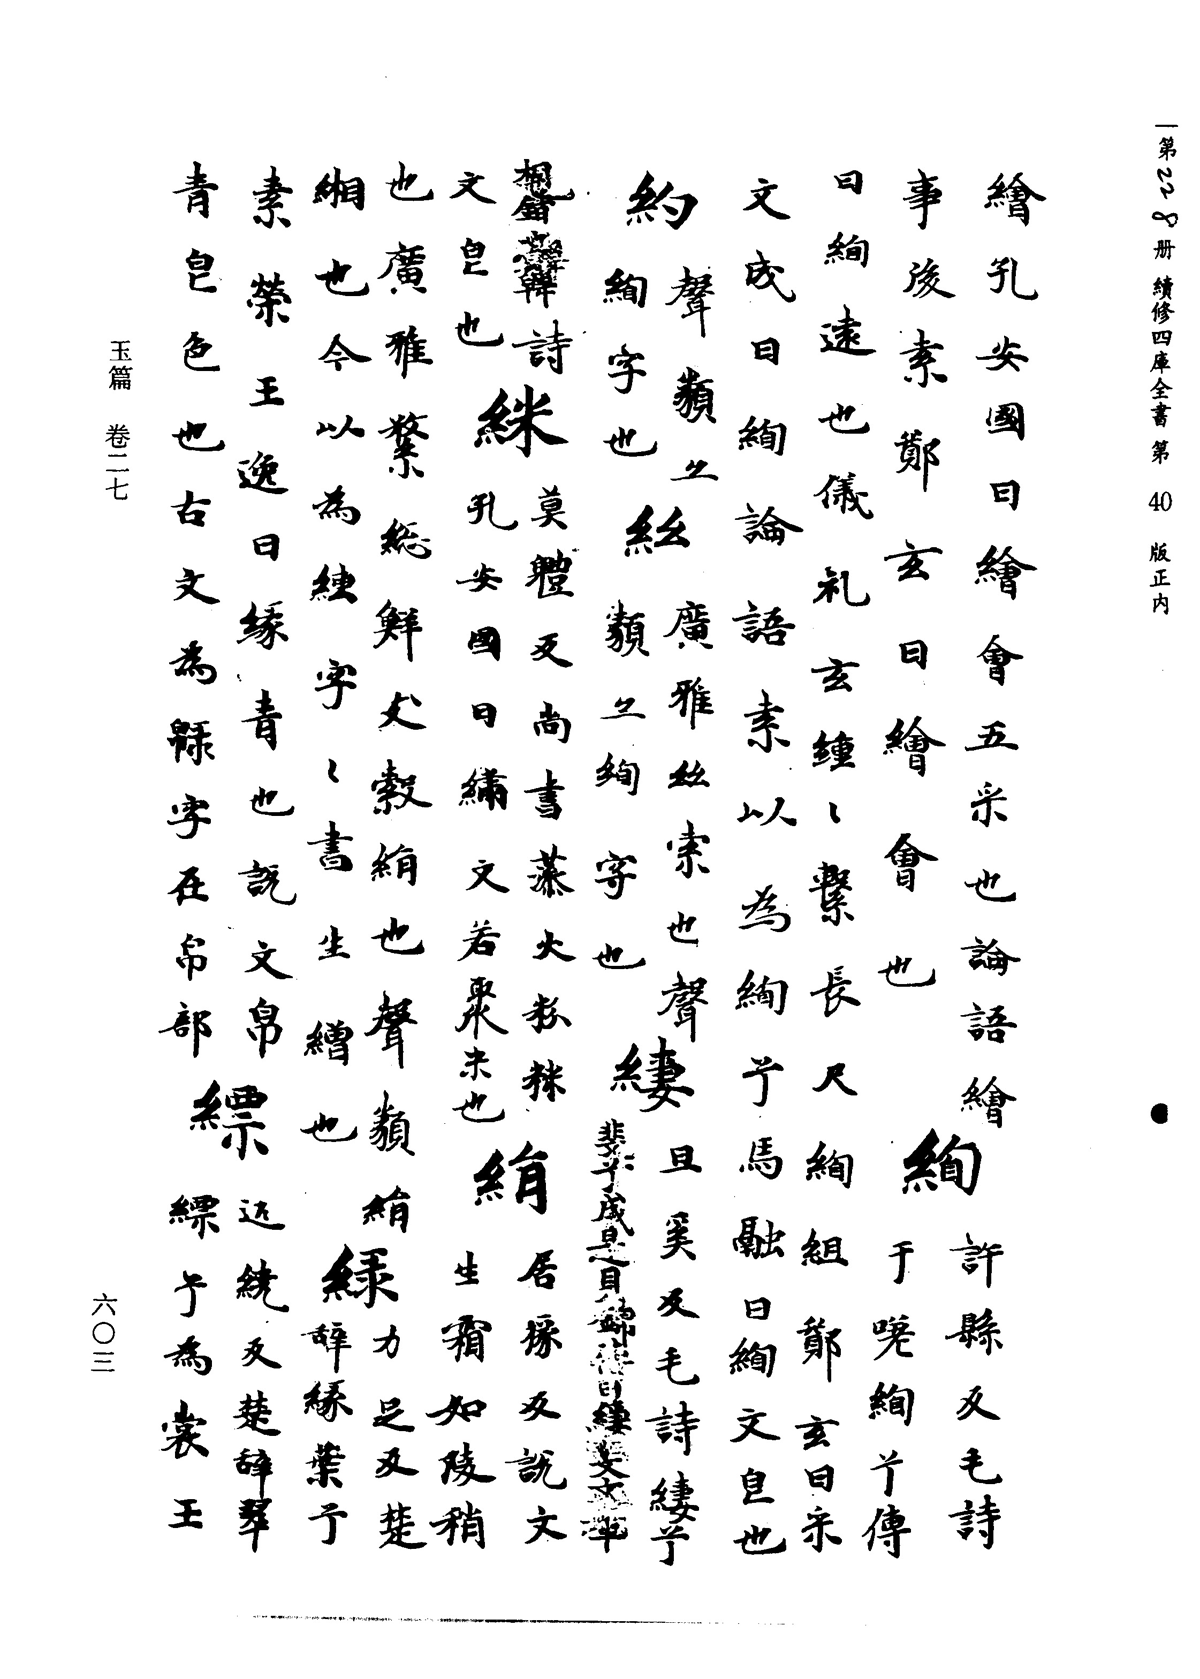 第228册 續修四庫全書 第40版正内
繪孔安國曰繪會五采也論語繪
事後素鄭玄曰繪會也
絢
許縣反毛詩
于嗟絢兮傳
曰絢遠也儀礼玄纁〻繫長尺絢組鄭玄曰采
文成曰絢論語素以為絢兮馬融曰絢文皃也
約
聲類亦
絢字也
絲
廣雅絲索也聲
類亦絢字也
緀
且奚反毛詩緀兮
斐兮成是貝錦傳曰緀斐文章
相錯也韓詩
文皃也
絊
莫體反尚書藻火粉粖
孔安國曰繡文若聚米也
絹
居掾反說文
生霜如陵稍
也廣雅繁総鮮支縠絹也聲類絹
緗也今以為練字〻書生繒也
緑
力足反楚
辞緑葉兮
素榮王逸曰緑青也說文帛
青皀色也古文為字在帛部
縹
匹繞反楚辞翠
縹兮為裳王
玉篇 卷二七
六〇三